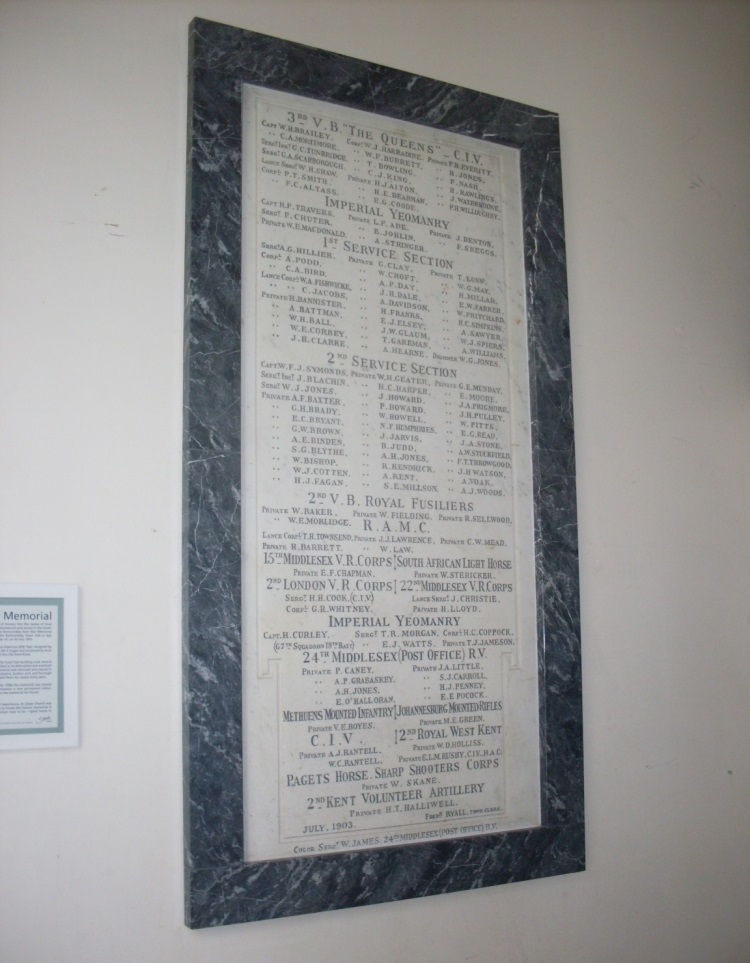 3RD V.B. "THE QUEENS" - C.I.V.
CAPT W.H.BRAILEY. CORPL W.J. PRIVATE F.H.EVERITT.
" C.A.MORTIMORE. " W.P.BURRETT. " R.JONES.
SERGT INSR G.C.TUNBRIDGE. " T. BOWLING. " F.NASH.
SERGT C.A.SCARBOROUGH. " C.J.KING. " H.RAWLINGS.
LANCE SERGT W.H.SHAW. PRIVATE H.J.ALTON. " J.WATERHOUSE.
CORPL F.T. SMITH " H.E. DEARMAN. " F.H.WILLOUGHBY.
" F.C.ALTASS. " E.G.COODE.
IMPERIAL YEOMANRY
CAPT R.P.TRAVERS. PRIVATE L.F. ADE. PRIVATE J.DENTON.
SERGT F. CHUTER. " B. JOBLIN. " F.SNEGGS.
PRIVATE W.E.MACDONALD. " A. STRINGER.
1ST SERVICE SECTION
SERGT A.G.HILLIER. PRIVATE G.CLAY. PRIVATE T. LUNN.
CORPL A.PODD. " W.CROFT. " W.G.MAY.
" C.A.BIRD. " A.F.DAY. " H.MILLAR.
LANCE CORPL W.A.FISHWICKE. " J.H.DALE. " E.W.PARRER.
" " C.JACOBS. " A.DAVIDSON. " W.PRITCHARD.
PRIVATE H.BANNISTER. " H.FRANKS. " H.C.SIMPKINS.
" A.BATTMAN. " E.J.ELSEY. " A.SAWYER.
" W.H.BALL. " J.W.GLAUM. " W.J.SPIERS.
" W.E.CORREY. " T.GAREMAN. " A.WILLIAMS.
" J.H.CLARKE. " A.HEARNE. DRUMMER W.G.JONES.
2ND SERVICE SECTION
CAPT W.F.J.SYMONDS. PRIVATE W.H.GEATER. PRIVATE G.E.MUNDAY.
SERGT INSR J.BLACHIN. " H.C.HARPER. " E.MOORE.
SERGT W.J.JONES. " J.HOWARD. " J.A.PRIGMORE.
PRIVATE A.F.BAXTER. " P.HOWARD. " J.H.PULLEY.
" G.H.BRADY. " W.HOWELL. " W. PITTS.
" E.C.BRYANT. " N.F.HUMPHRIES. " E.G.READ.
" G.W.BROWN. " J.JARVIS. " J.A.STONE.
" A.E.BINDEN. " B.JUDD. " A.W.STOCKFIELD.
" S.G.BLYTHE. " A.H.JONES. " F.T.THROWGOOD.
" W.BISHOP. " R.KENDRICK. " J.H.WATSON.
" W.J.COTTEN. " A.KENT. " A.VOAK.
" H.J.FAGAN. " S.E.MILLSON. " A.J.WOODS.
2ND V.B. ROYAL FUSILIERS
PRIVATE W.BAKER. PRIVATE W.FIELDING. PRIVATE R.SELLWOOD.
" W.E.MORLIDGE.
R.A.M.C.
LANCE CORPL T.H.TOWNSEND. PRIVATE J.J.LAWRENCE. PRIVATE C.W.MEAD.
PRIVATE H.BARRETT. " W.LAW.
15TH MIDDLESEX V.R.CORPS SOUTH AFRICAN LIGHT HORSE
PRIVATE E.F.CHAPMAN. PRIVATE W.STERICKER.
2ND LONDON V.R.CORPS 22ND MIDDLESEX V.R.CORPS
SERGT H.H.COOK.(C.I.V.) LANCE SERGT J.CHRISTIE.
CORPL G.R.WHITNEY. PRIVATE H.LLOYD.
IMPERIAL YEOMANRY
CAPT.H.CURLEY. SERGT T.R.MORGAN. CORPL H.C.COPPOCK.
(67TH SQUADRON 19TH BATT) " E.J.WATTS. PRIVATE T.J.JAMESON.
24TH MIDDLESEX (POST OFFICE) R.V.
PRIVATE P. CANEY. PRIVATE J.A.LITTLE.
" A.P.GRABASKEY. " S.J.CARROLL.
" A.H.JONES. " H.J.PENNEY.
" E.O'HALLORAN. " E.E POCOCK.
METHUENS MOUNTED INFANTRY JOHANNESBURG MOUNTED RIFLES
PRIVATE V.E.BOYES. PRIVATE M.E.GREEN.
C.I.V. 2ND ROYAL WEST KENT
PRIVATE A.J.RANTELL. PRIVATE W.D.HOLLISS.
" W.C.RANTELL. PRIVATE E.L.M.BUSBY, C.I.V., H.A.C.
PAGETS HORSE. SHARP SHOOTERS CORPS
PRIVATE W. SKANE.
2ND KENT VOLUNTEER ARTILLERY
PRIVATE H.T.HALLIWELL.
JULY, 1903. FREDK RYALL. TOWN CLERK.
COLOR SERGT W. JAMES. 24TH MIDDLESEX (POST OFFICE) R.V.
Memorial